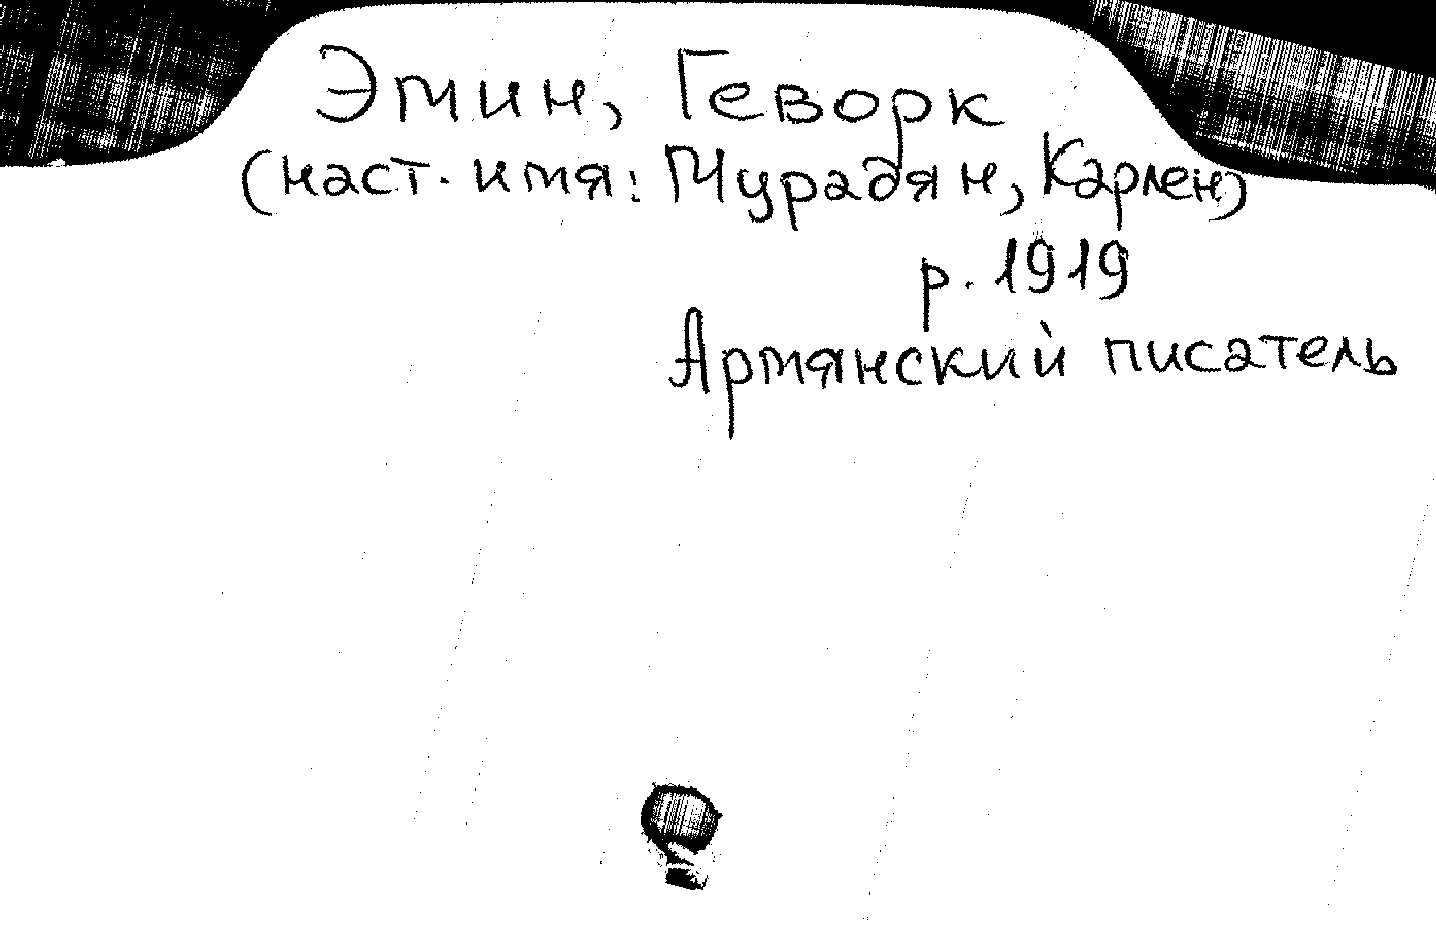 Эмин, Геворк
(наст. имя: Мурадян, Карлен)
р. 1919
Армянский писатель